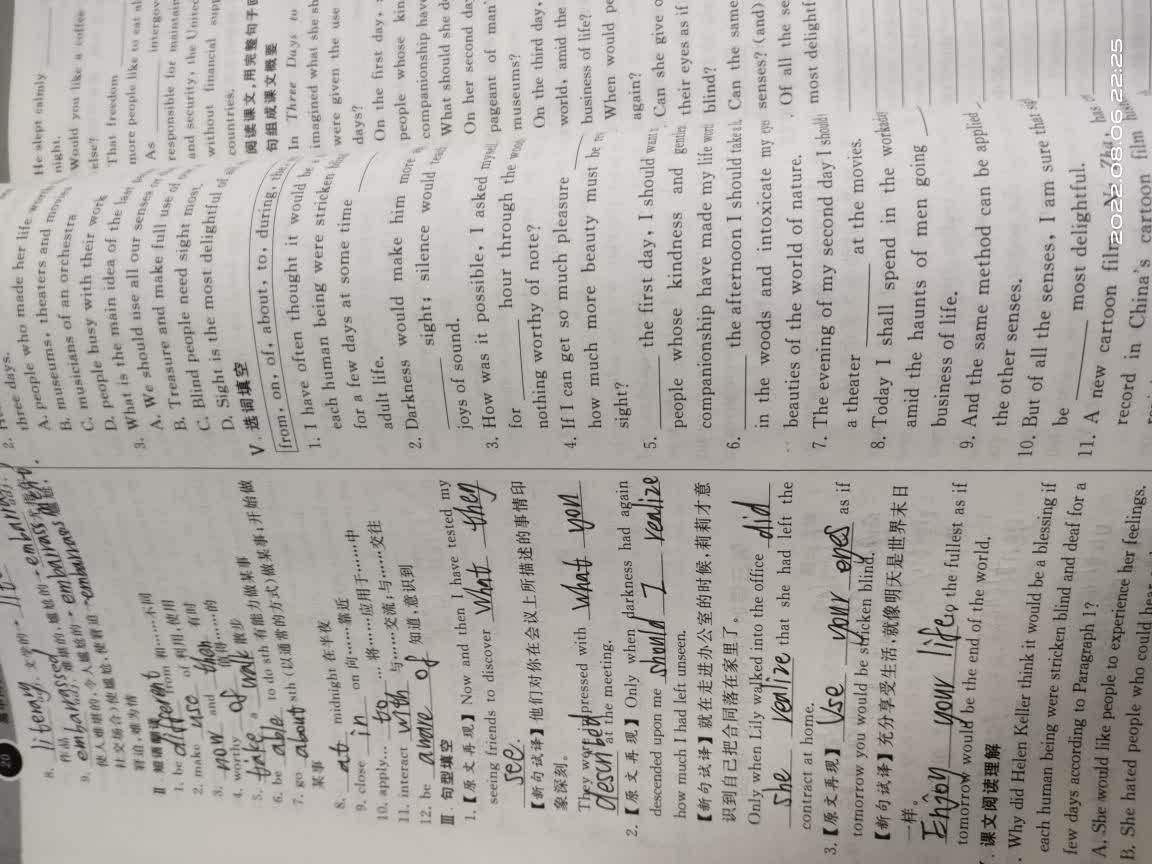 20
8. literary
作品
9. embarrassed
使人难堪的;令人尴尬的→embarrass
社交场合)使尴尬,使窘迫→embarrass
窘迫,难为情
Ⅱ
1. be different from 和……不同
2. make use of 利用,使用
3. now and then 有时
4. worthy of 值得……的
5. take a walk 散步
6. be able to do sth 有能力做某事
7. go about sth(以通常的方式)做某事;开始做
某事
8. at midnight 在半夜
9. close in on 向……靠近
10. apply... to 将……应用于……中
11. interact with 与……交流;与……交往
12. be aware of 知道,意识到
Ⅲ. 句型填空
1.【原文再现】Now and then I have tested my
seeing friends to discover what they
see.
【新句试译】他们对你在会议上所描述的事情印
象深刻。
They were impressed with what you
described at the meeting.
2.【原文再现】Only when darkness had again
descended upon me should I realize
how much I had left unseen.
【新句试译】就在走进办公室的时候,莉莉才意
识到自己把合同落在家里了。
Only when Lily walked into the office did
she realize that she had left the
contract at home.
3.【原文再现】Use your eyes as if
tomorrow you would be stricken blind.
【新句试译】充分享受生活,就像明天是世界末日
一样。
Enjoy your life to the fullest as if
tomorrow would be the end of the world.
课文阅读理解
Why did Helen Keller think it would be a blessing if
each human being were stricken blind and deaf for a
few days according to Paragraph 1?
A. She would like people to experience her feelings.
B. She hated people who could hear
three days.
2.
three people who made her life
A. people who
B. museums, theaters and movies
C. musicians of an orchestra
D. people busy with their work
3. What is the main idea of the last
A. We should use all our senses
B. Treasure and make full use of
C. Blind people need sight most.
D. Sight is the most delightful of
Ⅴ. 选词填空
from, on, of, about, to, during,
1. I have often thought it would be
each human being were stricken
for a few days at some time ____
adult life.
2. Darkness would make him more
____ sight; silence would
joys of sound.
3. How was it possible, I asked
for ____ hour through the
nothing worthy of note?
4. If I can get so much pleasure ____
how much more beauty must be
sight?
5. ____ the first day, I should
people whose kindness and
companionship have made my life
6. ____ the afternoon I should take a
in the woods and intoxicate my
beauties of the world of nature.
7. The evening of my second day I should
a theater ____ at the movies.
8. Today I shall spend in the workaday
amid the haunts of men going ____
business of life.
9. And the same method can be applied
the other senses.
10. But of all the senses, I am sure that
be ____ most delightful.
11. A new cartoon film,
record in China's cartoon film
He slept calmly ____
night.
Would you like a coffee
else?
That freedom
more people like to eat
As ____ intergov
responsible for maintain
and security, the United
without financial supp
countries.
阅读课文,用完整句子
句组成课文概要
In Three Days to
imagined what she sh
were given the use
days?
On the first day,
people whose kin
companionship have
What should she do
On her second da
pageant of man'
museums?
On the third day,
world, amid the
business of life?
When would pe
again?
Can she give o
their eyes as if
blind?
Can the same
senses? (and)
Of all the se
most delightf
2022.08.06 22:25